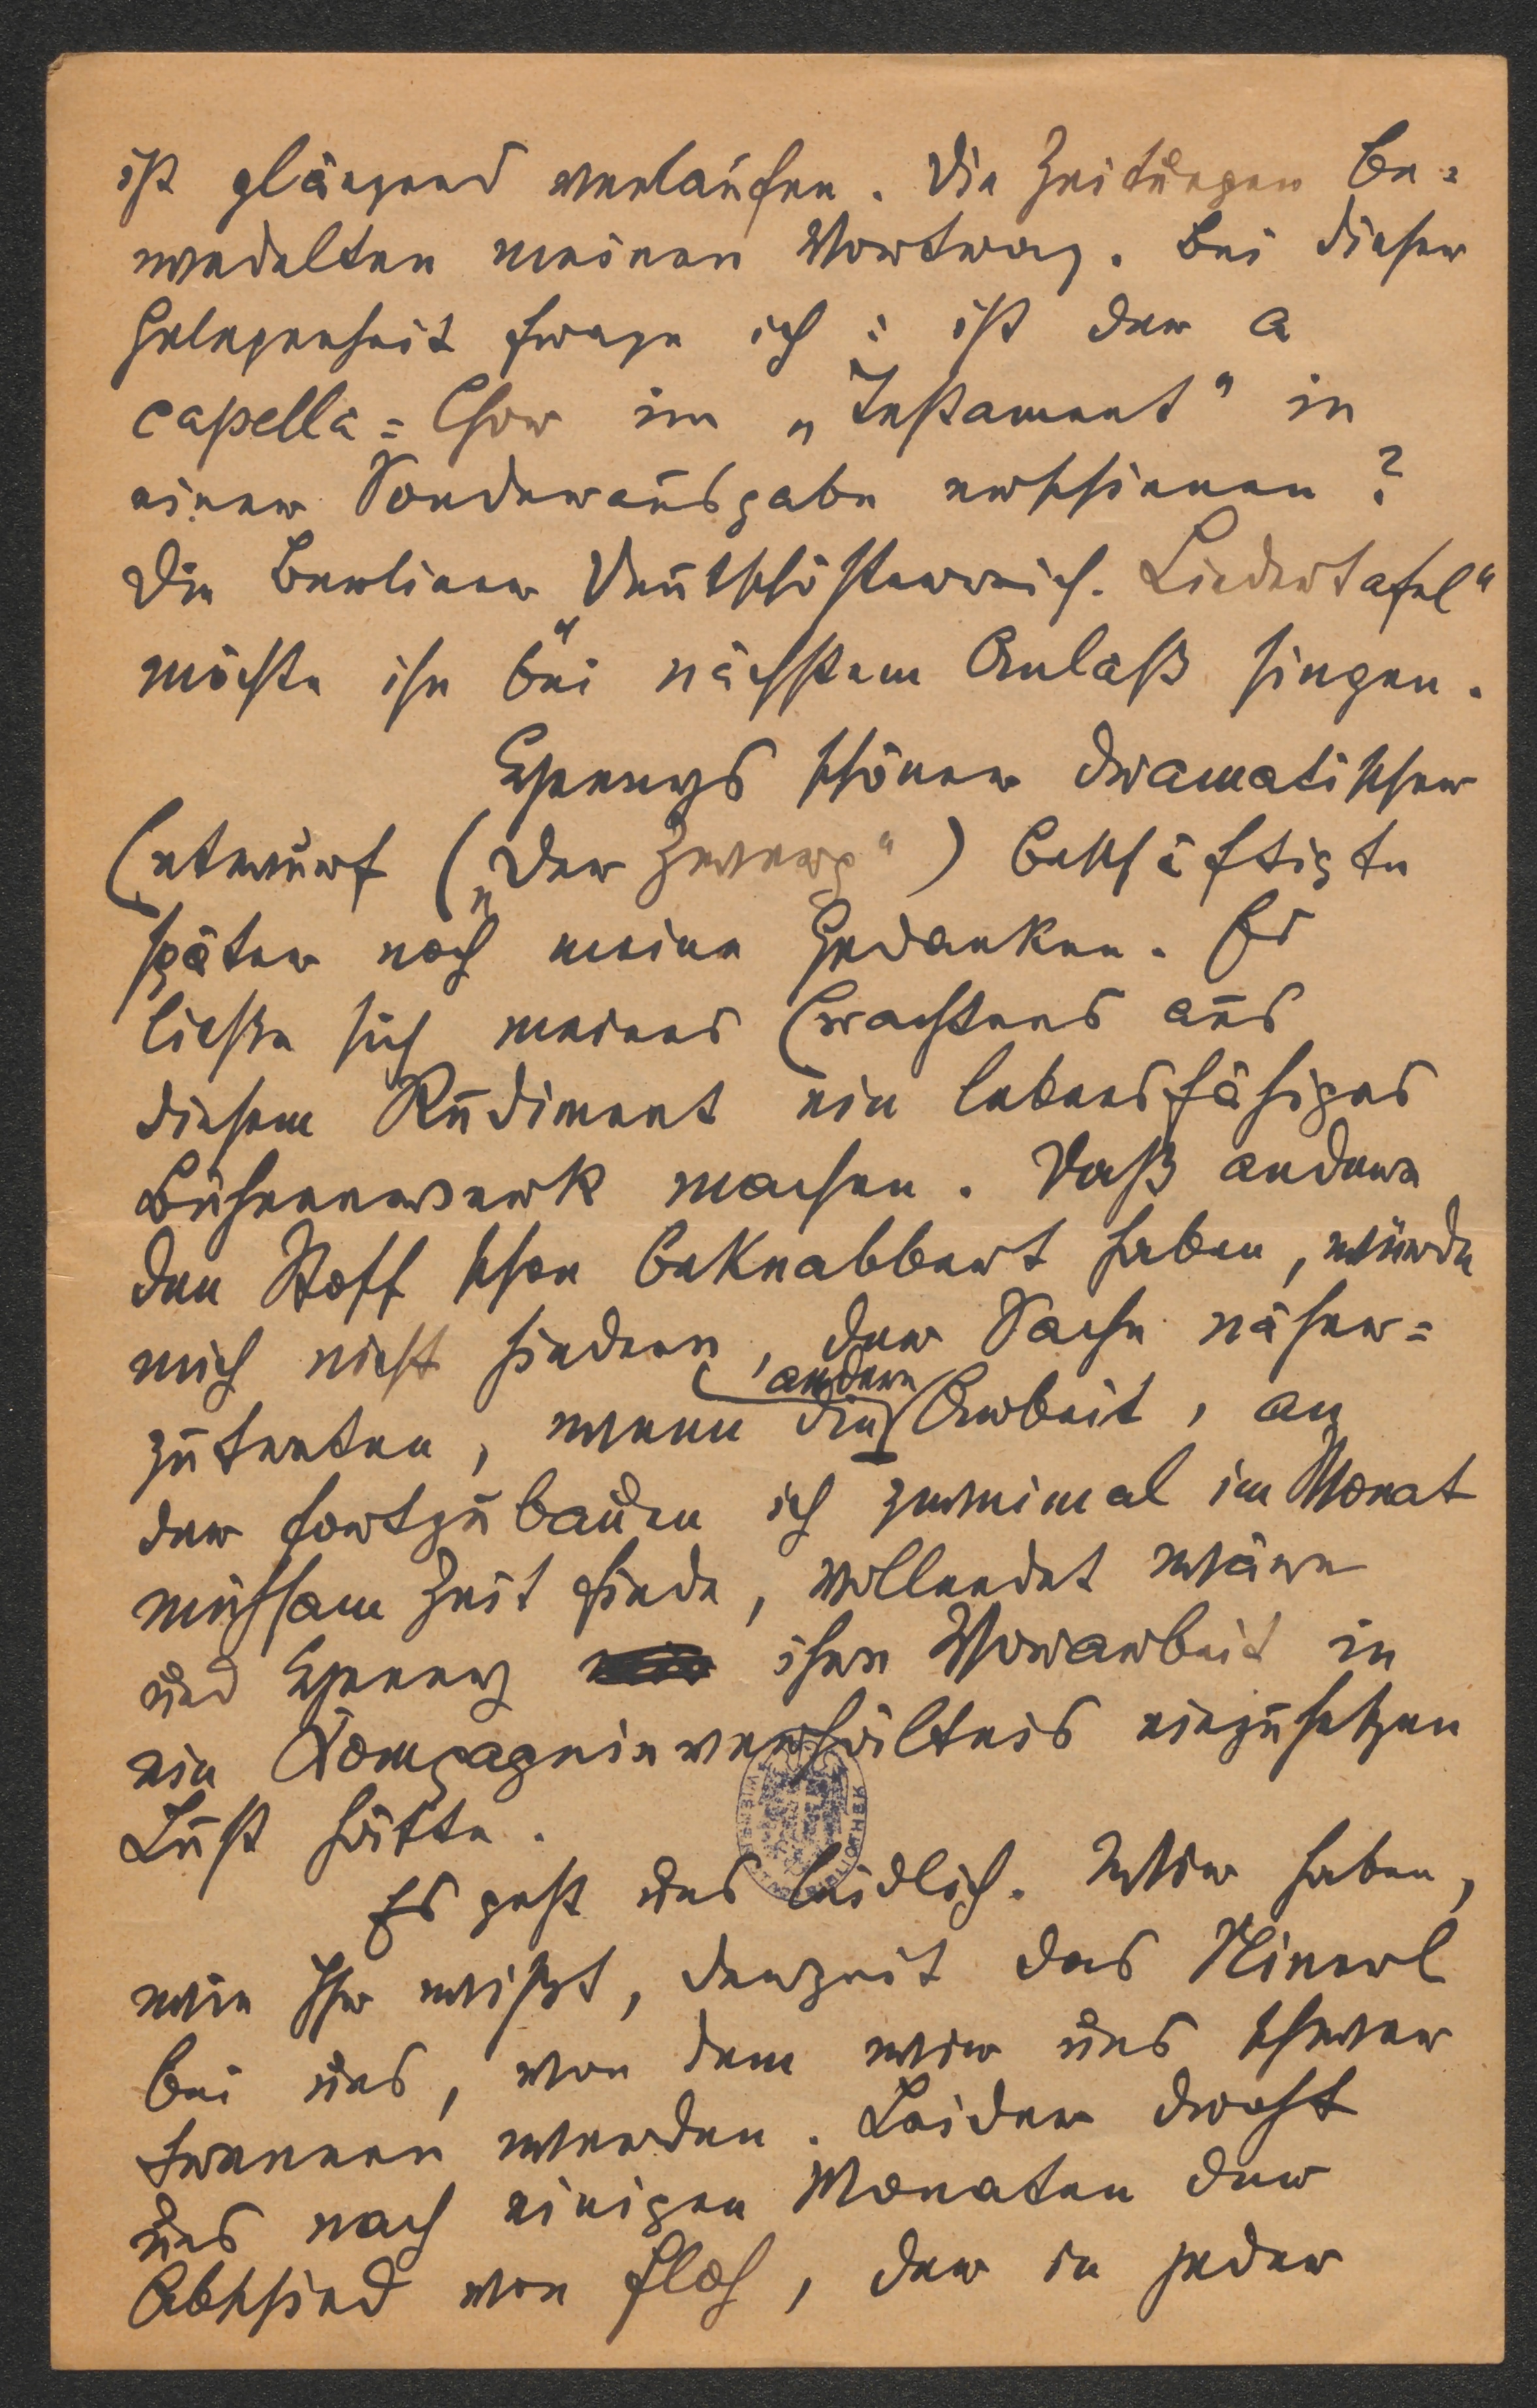 ist glänzend verlaufen. Die Zeitungen be=
wedelten meinen Vortrag. Bei dieser
Gelegenheit frage ich: ist der a
capella=Chor im „Testament" in
einer Sonderausgabe erschienen?
Die Berliner „Deutschösterreich. Liedertafel"
möchte ihn bei nächstem Anlaß singen.
schöner dramatischer
Entwurf („Der Zwerg") beschäftigte
später noch meine Gedanken. Es
ließe sich meines Erachtens aus
diesem Rudiment ein lebensfähiges
Bühnenwerk machen. Daß andere
den Stoff schon beknabbert haben, würde
mich nicht hindern, der Sache näher=
zutreten, wenn die andere Arbeit, an
der fortzubauen ich zweimal im Monat
mühsam Zeit finde, vollendet wäre
und ihre Vorarbeit in
ein Kompagnieverhältnis einzusetzen
Lust hätte.
Es geht uns leidlich. Wir haben,
wie Ihr wißt, derzeit das Ninerl
bei uns, von dem wir uns schwer
trennen werden. Leider droht
uns nach einigen Monaten der
Abschied von Floh, der in jeder